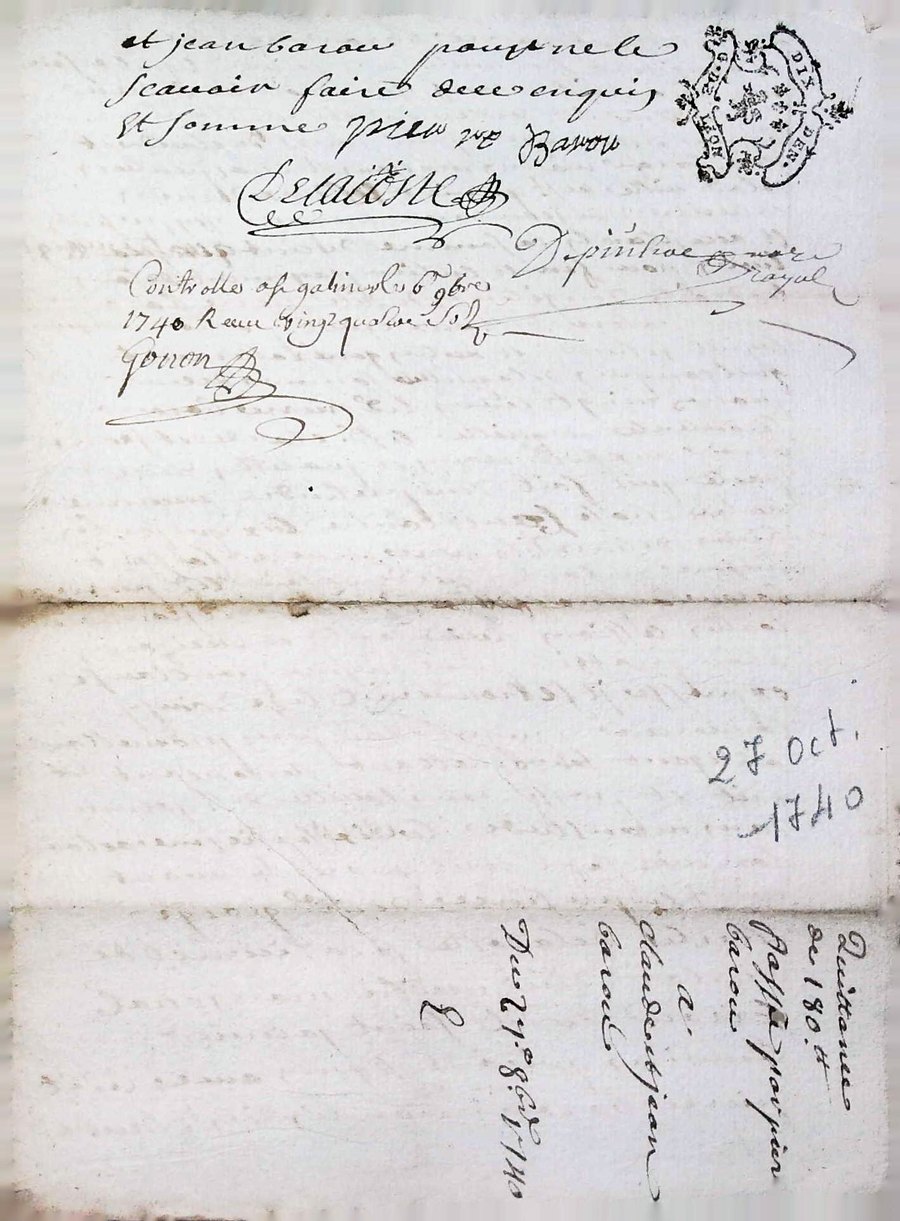 et jean barou pour ne le
scauoir faire de ce enquis
Et somme pierre Barou
Delacoste
notre royal
Controlle a St galmier le 6e 9bre
1740 Receu vingt quatre Sols
Gonon
G. DE
DIX DEN.
27 oct.
1740
Quittance
de 180 tt
passée par pierre
barou
A
claude et jean
barou
Du 27e 8bre 1740